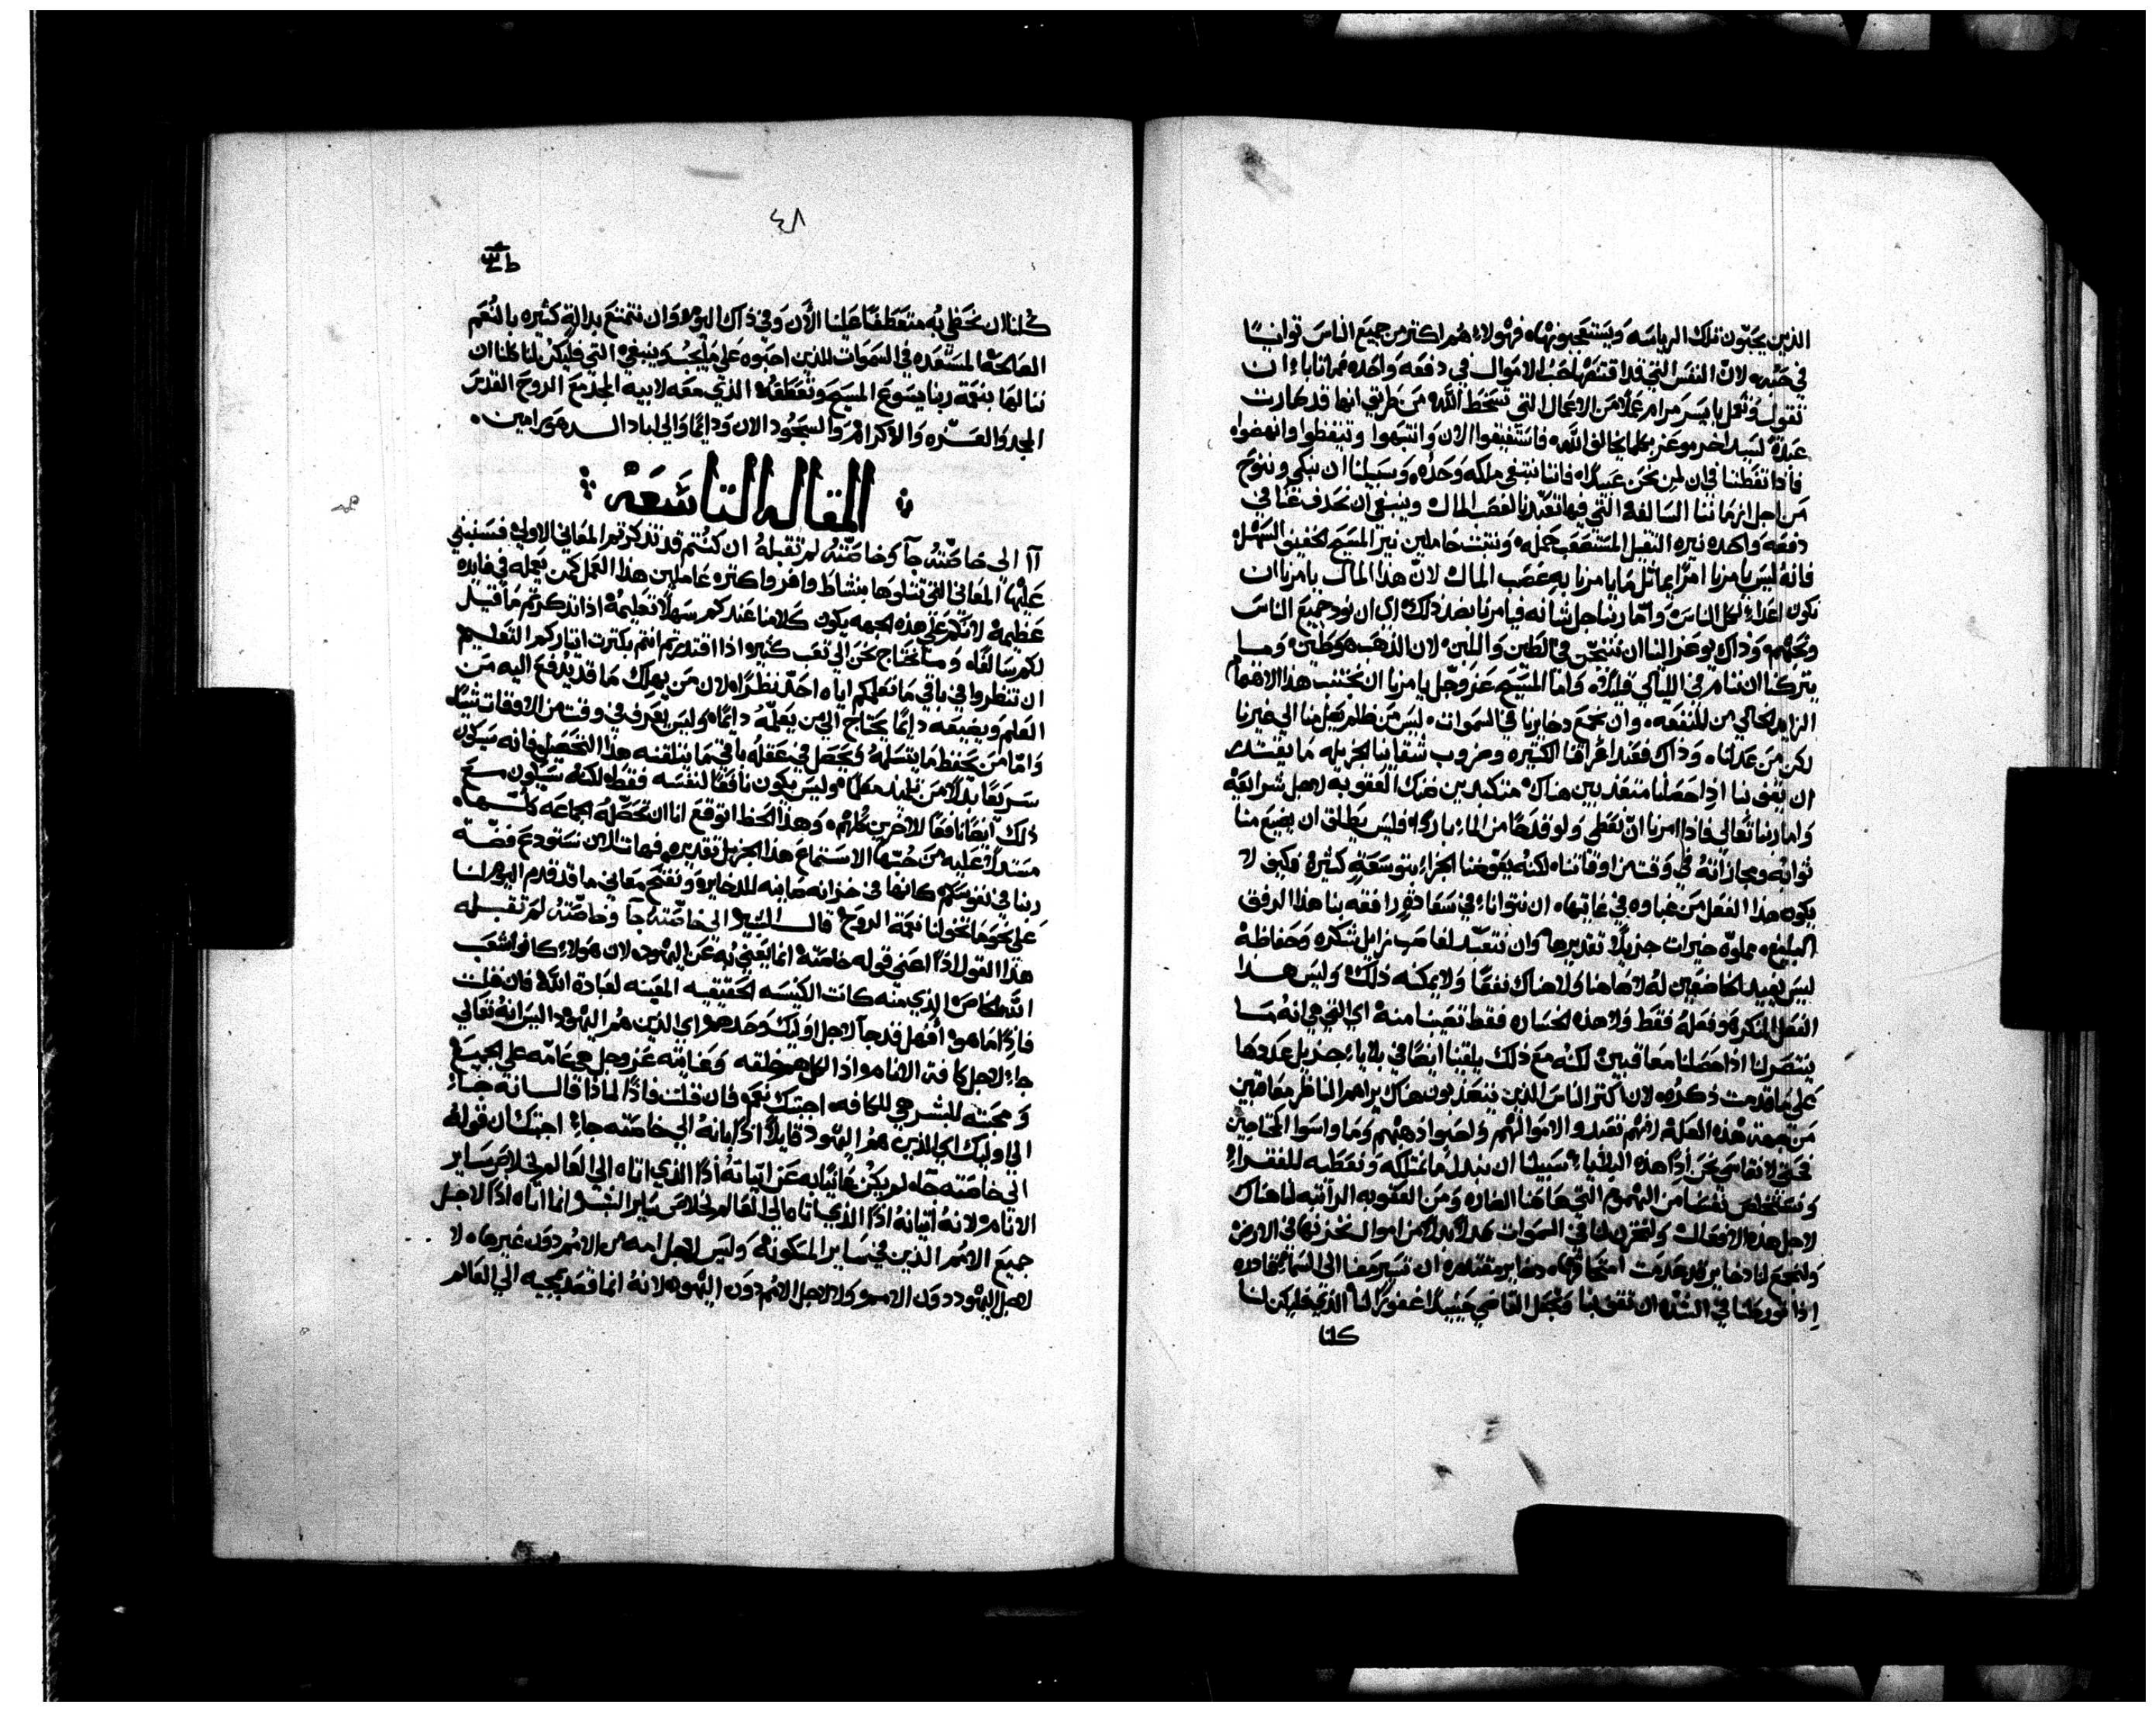 الذين يحبّون تلك الرياسه ويستعجبونها، فهولاء هم اكتر من جميع الناس توانيًا
في حبّه لانّ النفس التي قد اقتنصها حب الاموال في دفعه واحده فما تاباء ان
تقول وتعمل بايسر مرام عملاً من الاعمال التي تسخط الله من طريق انها قد صارت
عبدة لسيد اخر موعز بكلما يخالف الله فاستفيقوا الان وانتبهوا وتيقظوا وانهضوا
فاذا تفطنا في ان لمن نحن عبيدًا، فاننا نبتغي ملكه وحده وسبيلنا ان نبكي وننوح
من اجل ازماننا السالفة التي فيها تعبّدنا لغصب المال وينبغي ان نحدف عنا في
دفعه واحده نيره الثقيل المستصعب حمله وننبت حاملين نير المسيح الخفيف السهل
فانه ليس يامرنا امرًا يماثل ما يامرنا به غصب المال لانّ هذا المال يامرنا ان
نكون اعداء لكل الناس، وامّا ربنا جل شانه فيامرنا بضد ذلك اي ان نود جميع الناس
ونحبهم وذاك يوعز الينا ان في الطين واللبن لان الذهب هو طين وما
يتركنا ان ننام في الليالي قليلاً، واما المسيح عز وجل يامرنا ان نجتنب هذا الاهتمام
الزايد الخالي من المنفعه وان نجمع دخايرنا في السموات ليس من ظلم يصل منا الي غيرنا
لكن من عدلنا، وذاك فعند اعراقنا الكتيره وضروب شقاينا الجزيله ما يقتدر
ان يغوننا اذا حصلنا متعذبين هناك متكبدين ضنك العقوبه لاجل شرايعه
واما ربنا تعالى فاذا امرنا ان نعطي ولو قدحًا من الماء باردًا فليس يطلق ان يضيع منا
ثوابه ومجازاته في وقت من اوقاتنا، لكنه يعوضنا الجزاء بتوسعة كثيرة فكيف لا
يكون هذا الفعل من غباوه في غايتها، ان نتواناء في سعادة رافقه بنا هذا الرفق
البليغ مملوة خيرات جزيلاً تقديرها وان نتعبد لغاصب زايل شكره وحفاظه
ليس يفيد الخاضعين له لا هاهنا ولا هناك نفعًا ولا يمكنه ذلك وليس هذا
الفعل المنكر فعله فقط ولا هذه الخساره فقط تصيبنا منه اي التي هي انه ما
ينتصر لنا اذا حصلنا معاقبين لكنه مع ذلك يلقينا ايضًا في بلايا جزيل عددها
علي ما قدمت ذكره، لان اكتر الناس الذين يتعذبون هناك يراهم الناظر معاقبين
من جهة هذه العله لانهم تعبدوا لاموالهم واحبوا ذهبهم وما واسوا المحتاجين
فحتي لا نقاسي نحن اذا هذه البلايا، سبيلنا ان نبدل ما نمتلكه ونعطيه للفقراء
ونستخلص نفسنا من الهموم التي هاهنا الضاره ومن العقوبه الراتبه لنا هناك
لاجل هذه الافعال ولنخزن لنا في السموات عدلاً بدلاً من اموال نخزنها في الارض
ولنجمع لنا دخاير قد عدمت امتحاقها، دخاير مقتدره ان تسير معنا الي السماء قادره
اذا تورطنا في الشده ان تقف بنا وتجعل القاضي حينيذًا غفورًا لنا الذي فليكن لنا
كلنا
٤٨
كلنا ان نحظي به متعطفًا علينا الان وفي ذاك اليوم وان نتمتع بدالة كثيره بالنعم
الصالحة المستعده في السموات للذين احبوه علي ما يجب وينبغي التي فليكن لنا كلنا ان
ننالها بنعمة ربنا يسوع المسيح وتعطفه الذي معه لابيه المجد مع الروح القدس
المجد والعزه والاكرام والسجود الان ودايمًا والي اباد الدهور امين
المقاله التاسعه
آا الي خاصّته جآ وخاصّته لم تقبله ان كنتم قد تذكرتم المعاني الاولي فسنبني
عليها المعاني التي تتلوها بنشاط وافر واكتره عاملين هذا العمل كمن يعمله في فايده
عظيمة لانكم علي هذه الجهه يكون كلامنا عندكم سهلاً تعليمه اذا تذكرتم ما قيل
لكم سالفًا، وما نحتاج نحن الي تعب كثير اذا اقتدرتم انتم بكترت ايثاركم التعليم
ان تنظروا في باقي ما نعلمكم اياه احدّ نظرًا، لان من يهلك ما قد يدفع اليه من
العلم ويضيعه دايمًا يحتاج الي من يعلّمه دايمًا، وليس يعرف في وقت من الاوقات شيًا،
وامّا من يحفظ ما يتسلمه ويحصل في عقله باقي ما يتلقنه هذا التحصيل فانه سيكون
سريعًا بدلاً من تلميد معلمًا، وليس يكون نافعًا لنفسه فقط، لكنه سيكون مع
ذلك ايضًا نافعًا للاخرين كلهم، وهذا الحظ اتوقع انا ان تحصّله الجماعه كلها،
مستدلاً عليه من حبّها الاستماع هذا الجزيل تقديره فهات الان نستودع فضّة
ربنا في نفوسكم كانها في خزانه صاينه للدخايره ونفتح معاني ما قد قدم اليوم لنا
علي نحو ما تخولنا نعمة الروح قال البشير الي خاصّته جآ وخاصّته لم تقبله
هذا القول اذا اعني قوله خاصّته انما يعني به عن اليهود، لان هولاء كانوا شعب
الله الخاص الذي منه كانت الكنيسه الحقيقيه المعينه لعبادة الله فان قلت
فاذًا ما هو افهل قد جآ لاجل اوليك وحدهم اي الذين هم اليهود اليس انه تعالي
جاء لاجل كافة الانام واذا الكل هم خلقه وعنايته عز وجل هي عامّه علي الجميع
ومحبته للبشر هي للكافه، اجبتك نعم، فان قلت فاذًا لماذا قال انه جاء
الي اوليك اي الذين هم اليهود قايلاً انه الي خاصّته جاء اجبتك ان قوله
الي خاصّته جآ، لم يكن عن اتيانه اذًا الذي اتاه الي العالم لخلاص ساير
الانام ولانه اتيانه اذًا الذي اتاه الي العالم لخلاص ساير البشر انما اتاه اذًا لاجل
جميع الامم الذين في ساير المسكونة، وليس لاجل امه من الامم دون غيرها، لا
لاجل اليهود دون الامم ولا لاجل الامم دون اليهود، لانه انما قصد بمجيه الي العالم